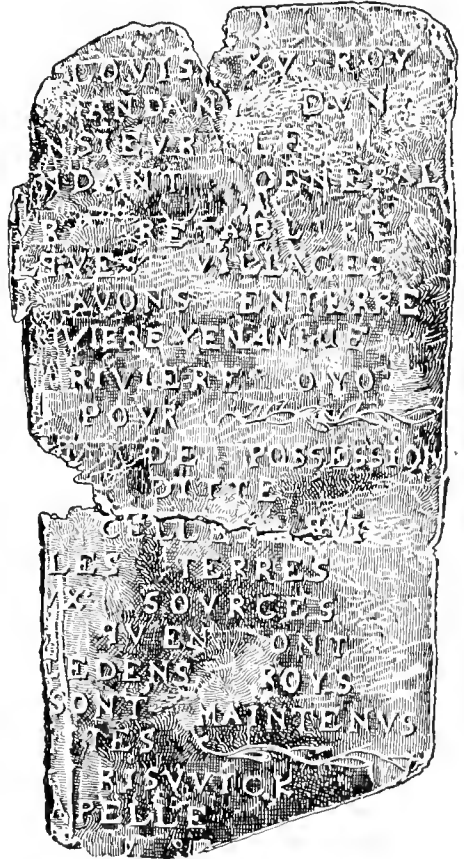 LOVIS XV ROY
MANDANT DVN
NSIEVR LE M
NDANT GENERAL
R RETABLIRE
QVES VILLAGES
AVONS ENTERRE
IVIERE YENANGUE
RIVIERE OYO
POVR
DE POSSESSION
DITTE
CELLES QVI
LES TERRES
VX SOVRCES
QVEN ONT
CEDENS ROYS
SONT MAINTENVS
TES
RISVVICK
PELLE